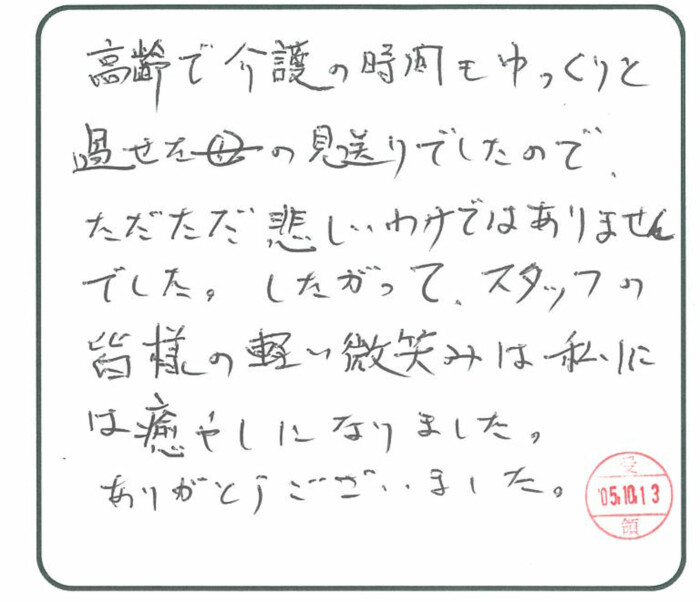 高齢で介護の時間もゆっくりと
過せた母の見送りでしたので、
ただただ悲しいわけではありません
でした。したがって、スタッフの
皆様の軽い微笑みは私に
は癒やしになりました。
ありがとうございました。
受
'05.10.13
領